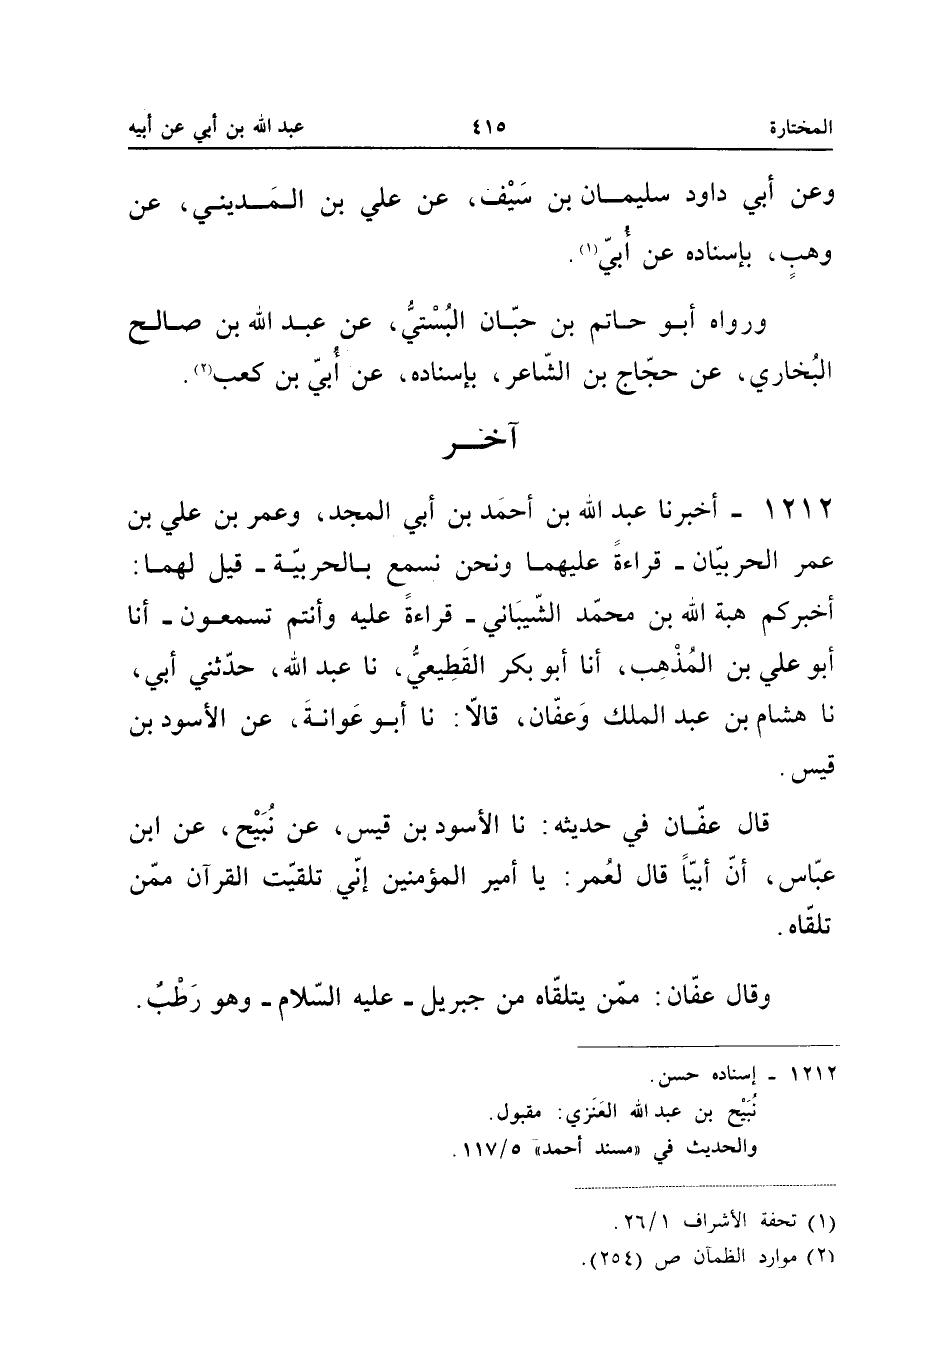 المختارة ٤١٥ عبد الله بن أبي عن أبيه
وعن أبي داود سليمان بن سَيْف، عن علي بن المَديني، عن
وهبٍ، بإسناده عن أُبيّ(١).
ورواه أبو حاتم بن حبّان البُسْتيُّ، عن عبد الله بن صالح
البُخاري، عن حجّاج بن الشّاعر، بإسناده، عن أُبيّ بن كعب(٢).
آخر
١٢١٢ - أخبرنا عبد الله بن أحمَد بن أبي المجد، وعمر بن علي بن
عمر الحربيّان - قراءةً عليهما ونحن نسمع بالحربيّة - قيل لهما:
أخبركم هبة الله بن محمّد الشّيبَاني - قراءةً عليه وأنتم تسمعون - أنا
أبو علي بن المُذْهِب، أنا أبو بكر القَطِيعيُّ، نا عبد الله، حدّثني أبي،
نا هشام بن عبد الملك وَعفّان، قالاّ: نا أبو عَوانةَ، عن الأسود بن
قيس.
قال عفّان في حديثه: نا الأسود بن قيس، عن نُبَيْح، عن ابن
عبّاس، أنّ أبيّاً قال لعُمر: يا أمير المؤمنين إنّي تلقيّت القرآن ممّن
تلقّاه.
وقال عفّان: ممّن يتلقّاه من جبريل - عليه السّلام - وهو رَطْبٌ.
١٢١٢ - إسناده حسن.
نُبَيْح بن عبد الله العَنَزي: مقبول.
والحديث في «مسند أحمد» ١١٧/٥.
(١) تحفة الأشراف ٢٦/١.
(٢) موارد الظمآن ص (٢٥٤).